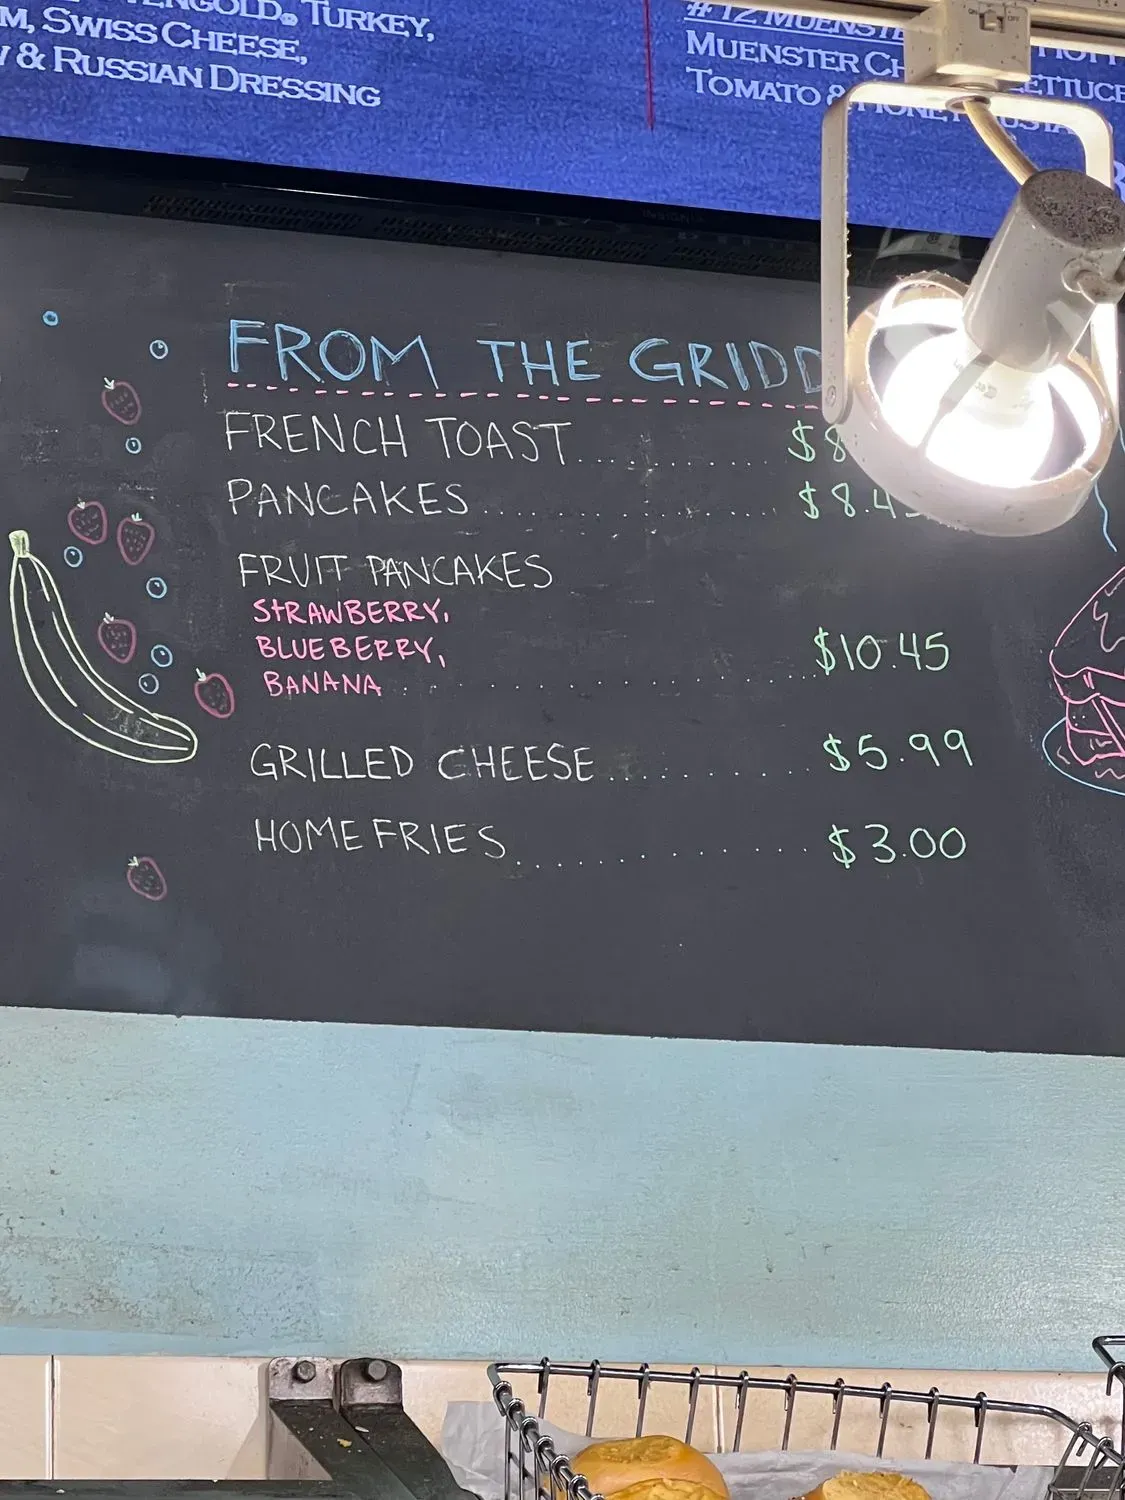 TURKEY,
SWISS CHEESE,
& RUSSIAN DRESSING
#12
MUENSTER
TOMATO &
FROM THE
FRENCH TOAST.......... $8
PANCAKES................ $8.4
FRUIT PANCAKES
STRAWBERRY,
BLUEBERRY,
BANANA.................. $10.45
GRILLED CHEESE.......... $5.99
HOME FRIES.............. $3.00